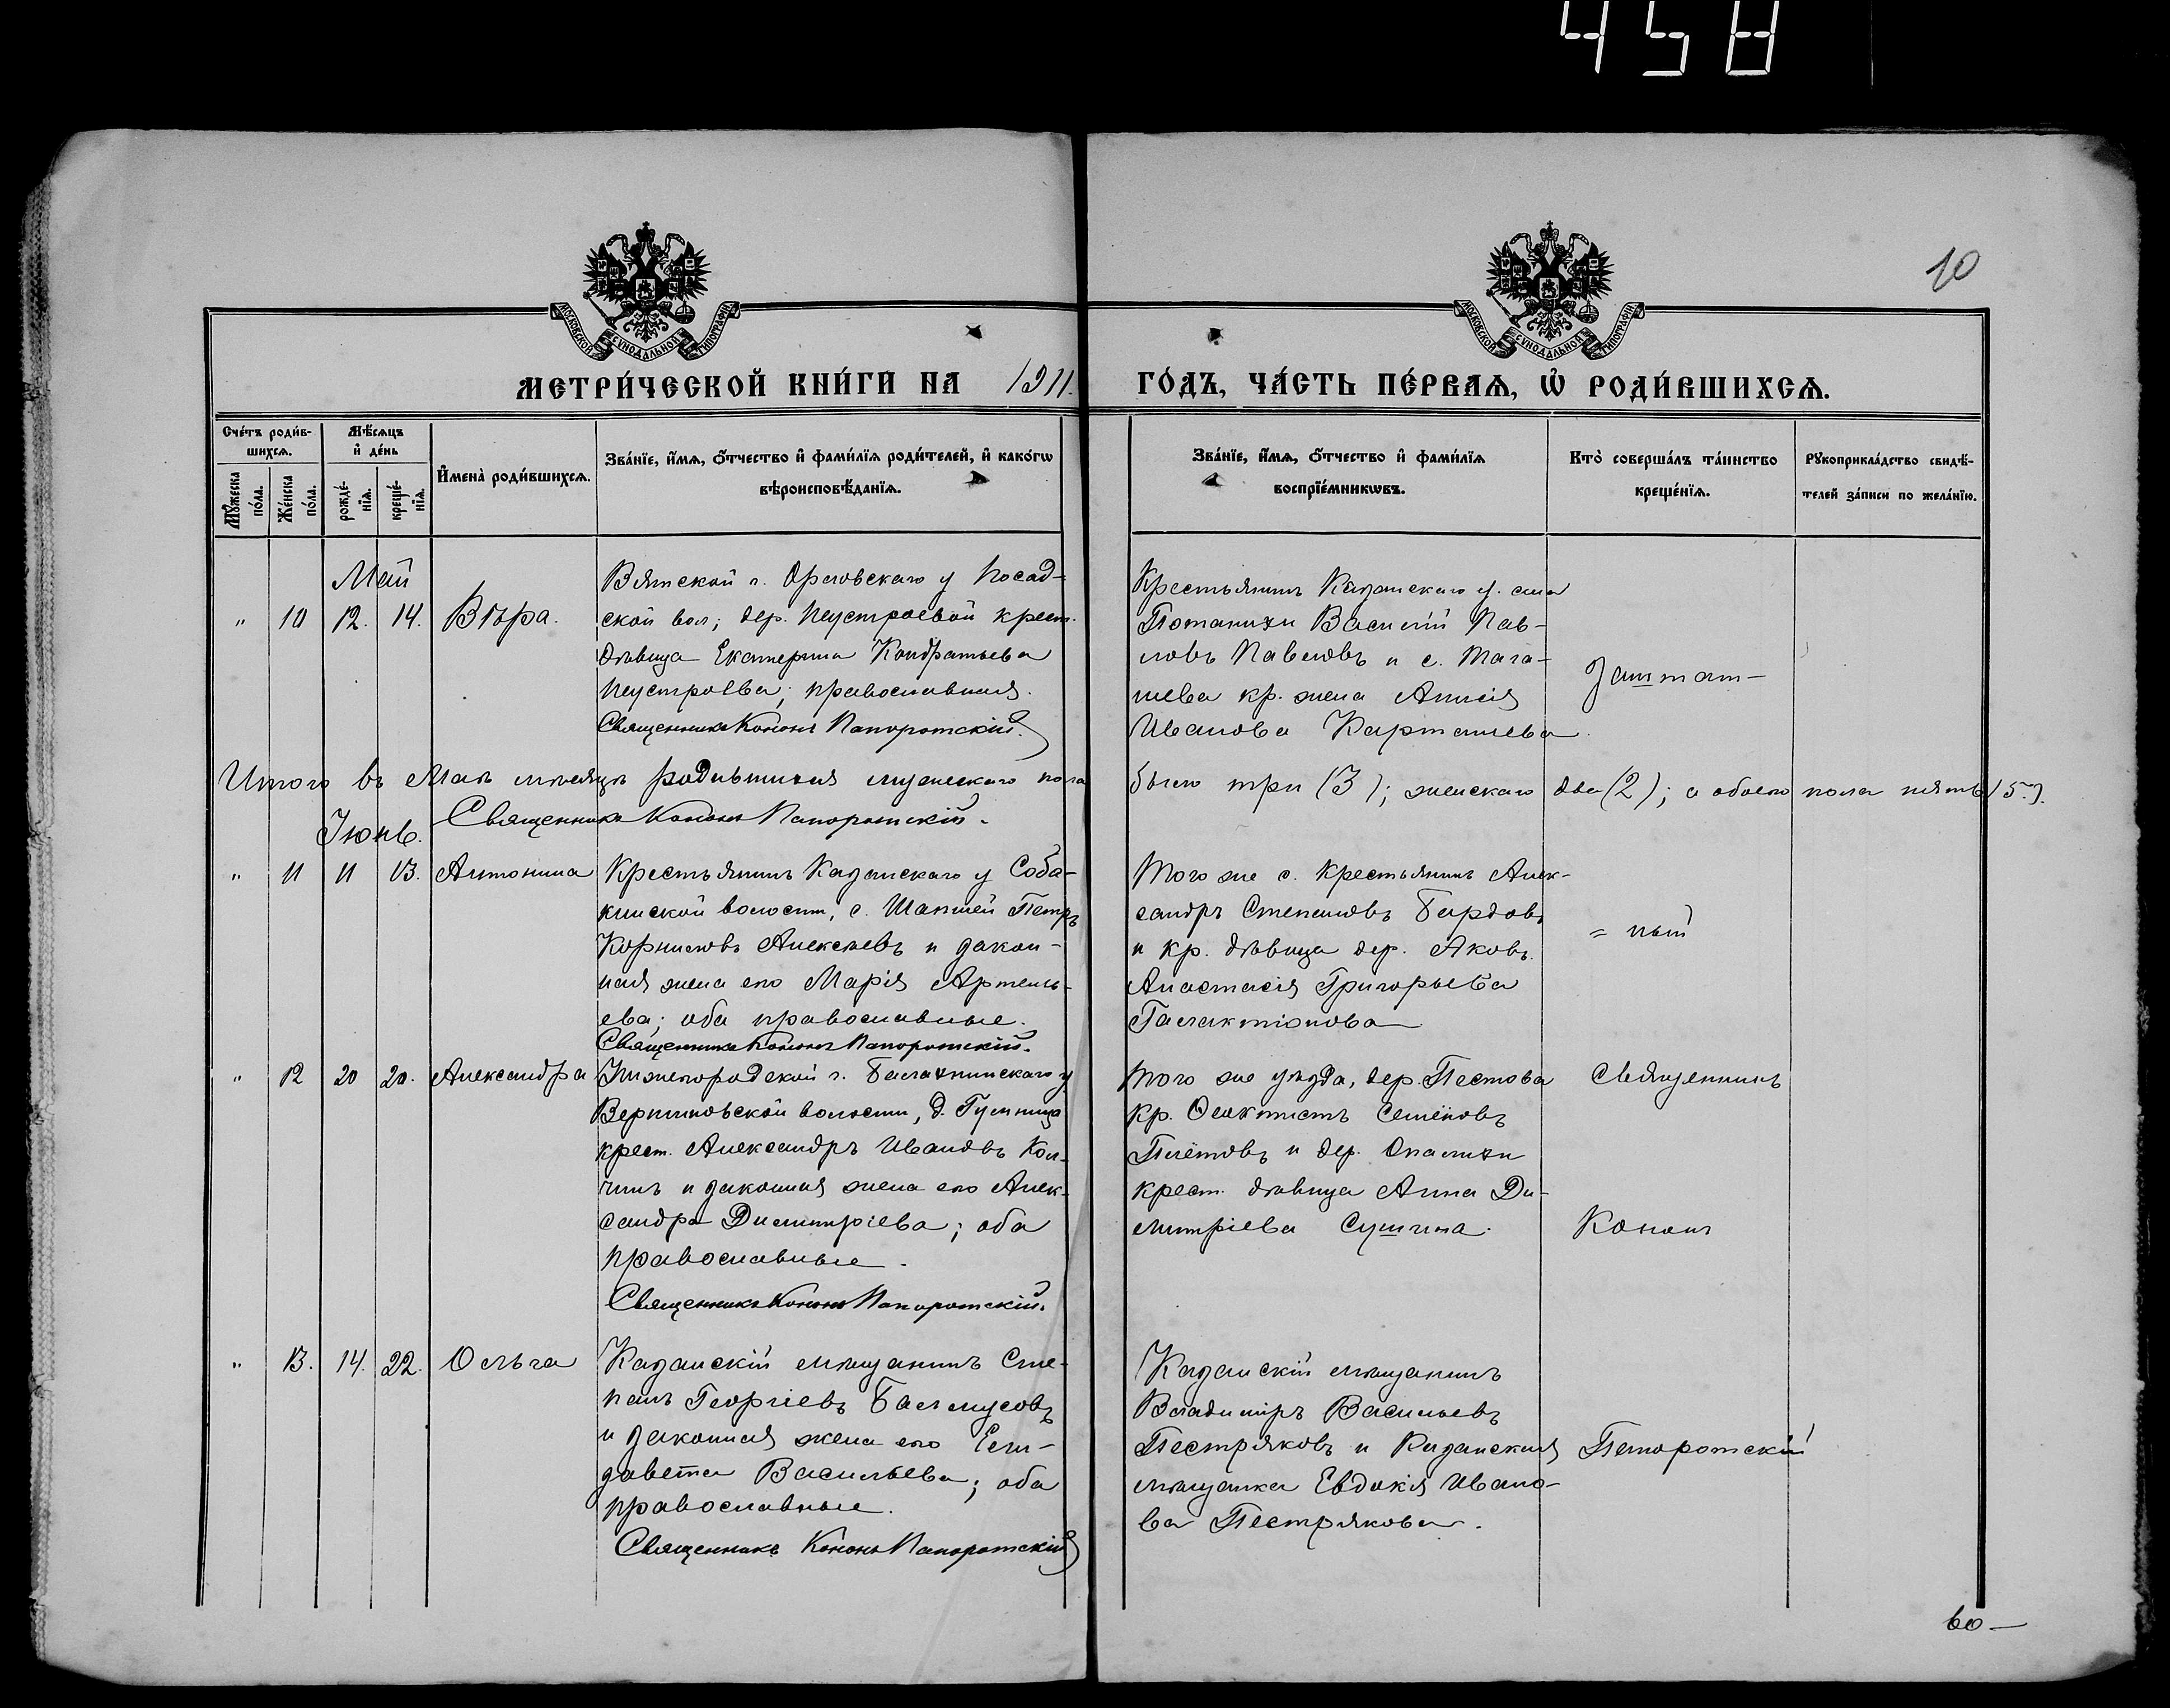 458
10
МОСКОВСКОЙ СУНОДАЛЬНОЙ ТИПОГРАФІИ
МОСКОВСКОЙ СУНОДАЛЬНОЙ ТИПОГРАФІИ
МЕТРИ́ЧЕСКОЙ КНИ́ГИ НА 1911. ГО́ДЪ, ЧА́СТЬ ПЕ́РВАѦ, Ѡ҆ РОДИ́ВШИХСѦ.
Сче́тъ роди́в-
шихсѧ.
Мꙋ́жеска по́ла.
Же́нска по́ла.
Мѣ́сѧцъ
и҆ де́нь
рожде́-
нїѧ.
креще́-
нїѧ.
И҆мена̀ роди́вшихсѧ.
Зва́нїе, и҆́мѧ, ѻ҆́тчество и҆ фами́лїѧ роди́телей, и҆ како́гѡ
вѣроисповѣ́данїѧ.
Зва́нїе, и҆́мѧ, ѻ҆́тчество и҆ фами́лїѧ
воспрїе́мникѡвъ.
Кто̀ соверша́лъ та́инство
креще́нїѧ.
Рꙋкоприкла́дство свидѣ́-
телей за́писи по жела́нїю.
Май
" 10 12. 14. Вѣра.
Вятской г. Орловскаго у Посад-
ской вол; дер. Неустроевой крест.
дѣвица Екатерина Кондратьева
Неустроева; православная.
Священникъ Кононъ Папоротскій.
Крестьянинъ Казанскаго у. села
Потанихи Василій Пав-
ловъ Павловъ и с. Тага-
шева кр. жена Аннсія
Иванова Карташева.
Заштат-
Итого въ Маѣ мѣсяцѣ родившихся мужескаго пола было три (3); женскаго два (2); а обоего пола пять (5.).
Священникъ Кононъ Папоротскій.
Іюнь.
" 11 11 13. Антонина
Крестьянинъ Казанскаго у Соба-
кинской волости, с. Шапшей Петръ
Корниловъ Алексѣевъ и закон-
ная жена его Марія Артемь-
ева; оба православные.
Священникъ Кононъ Папоротскій.
Того же с. крестьянинъ Алек-
сандръ Степановъ Бардовъ
и кр. дѣвица дер. Яковъ.
Анастасія Григорьева
Галактіонова
= ный
" 12 20 20. Александра
Нижегородской г. Балахнинскаго у
Вершиловской волости, д. Гумнища
крест. Александръ Ивановъ Кол-
чинъ и законная жена его Алек-
сандра Димитріева; оба
православные.
Священникъ Кононъ Папоротскій.
Того же уѣзда, дер. Пестова
кр. Ѳеоктистъ Семёновъ
Плётовъ и дер. Опалихи
крест. дѣвица Анна Ди-
митріева Сушина.
Священникъ
Кононъ
" 13. 14. 22. Ольга
Казанскій мѣщанинъ Сте-
панъ Георгіевъ Балмусовъ
и законная жена его Ели-
завета Васильева; оба
православные.
Священникъ Кононъ Папоротскій
Казанскій мѣщанинъ
Владиміръ Васильевъ
Пестряковъ и Казанская
мѣщанка Евдокія Ивано-
ва Пестрякова.
Папоротскій
во—